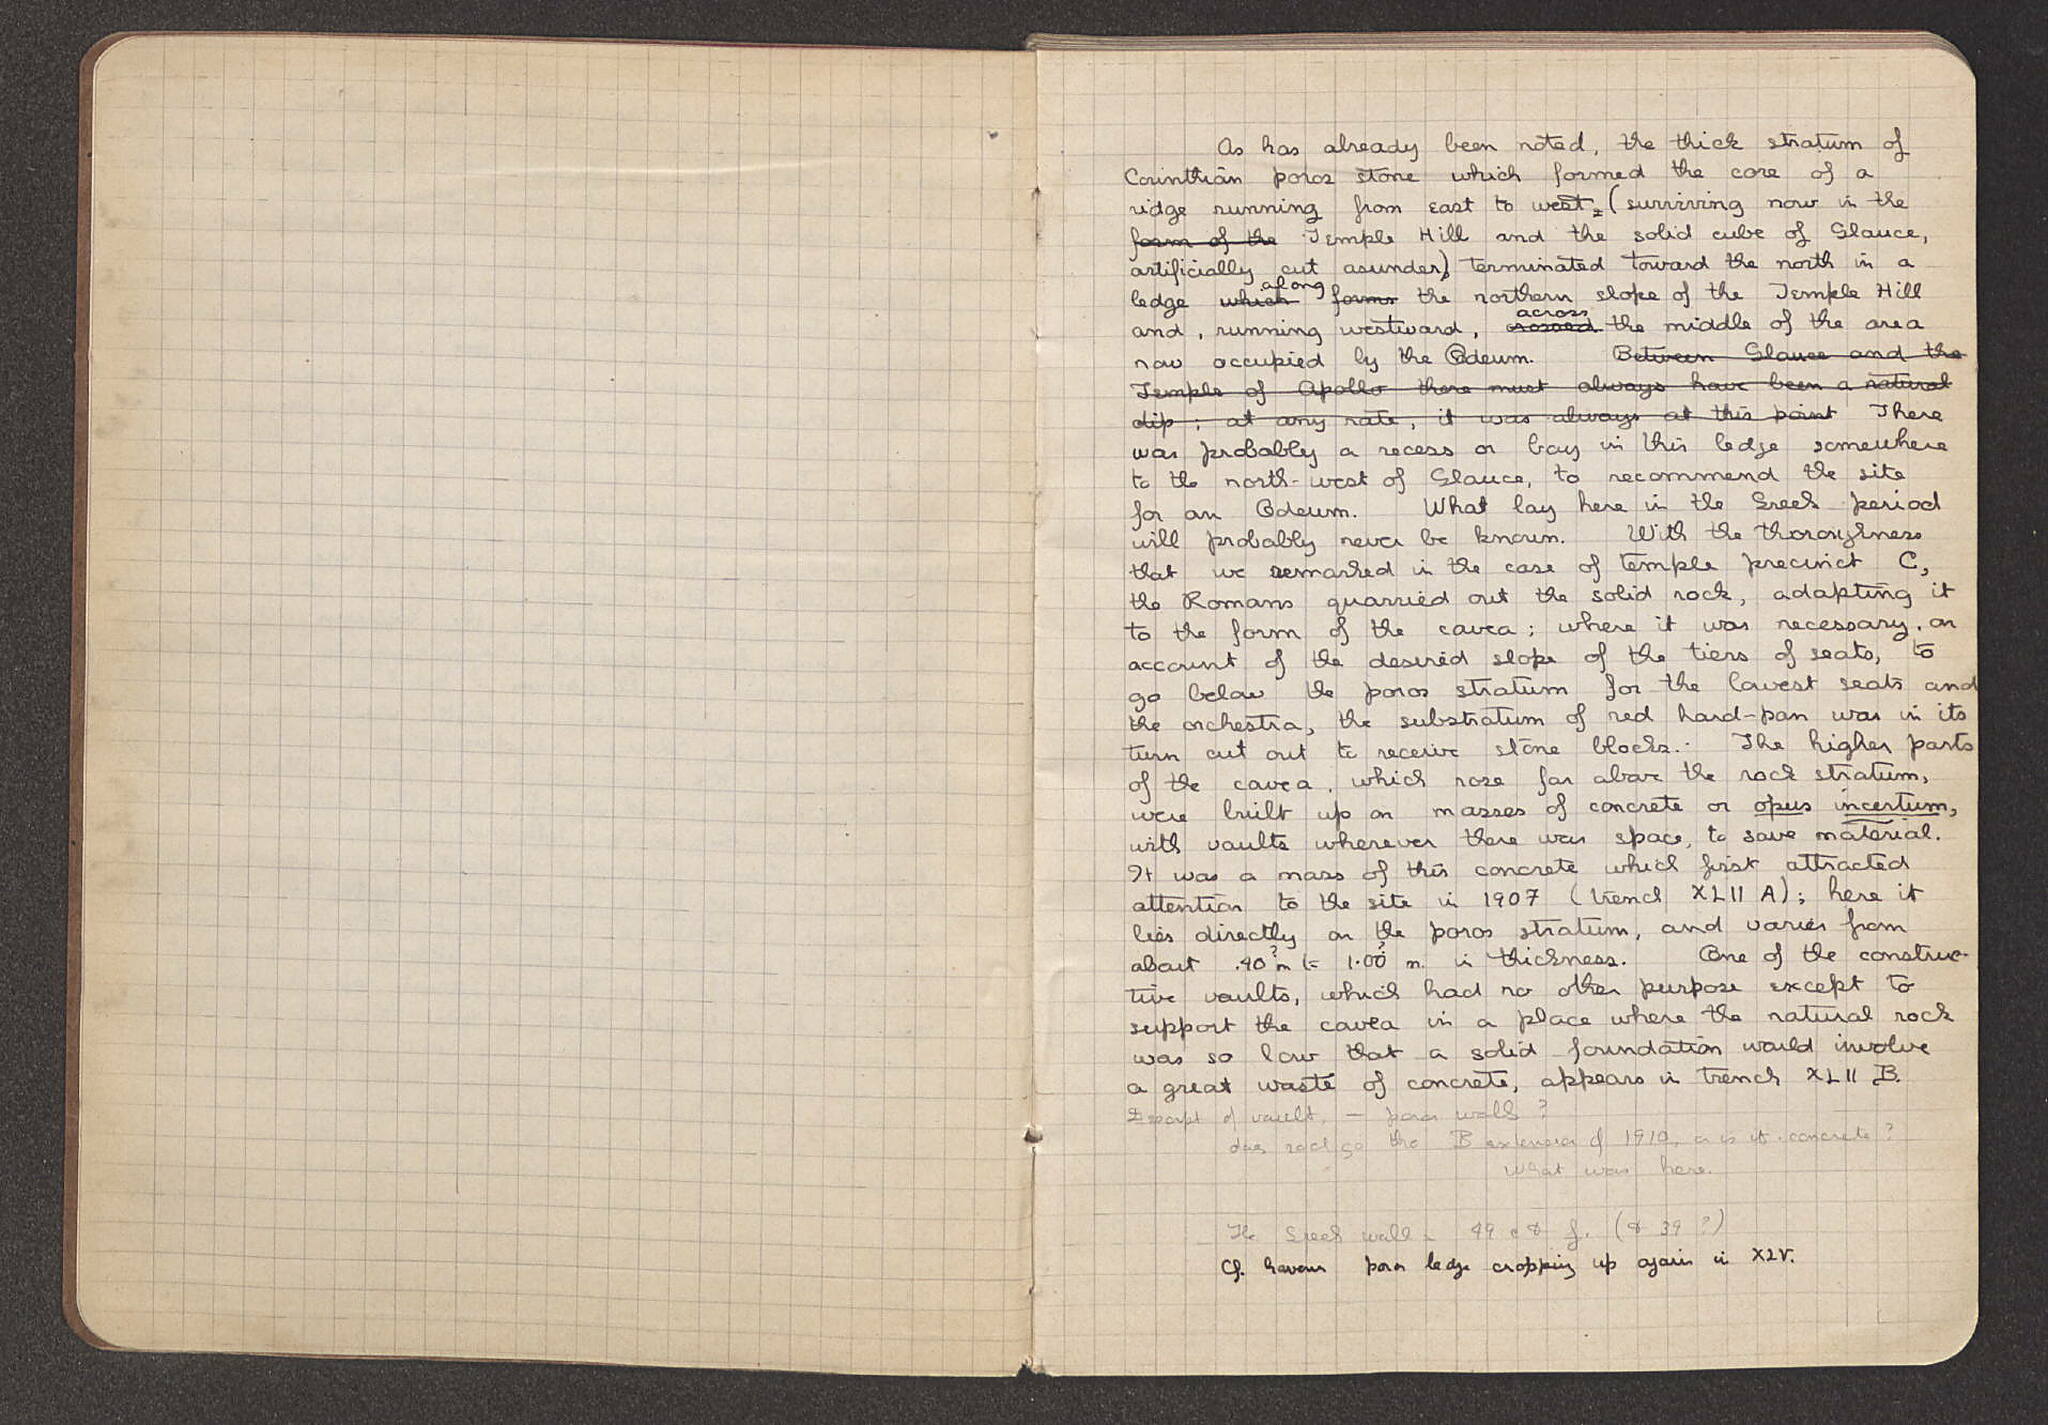 As has already been noted, the thick stratum of
Corinthian poros stone which formed the core of a
ridge running from east to west, (surviving now in the
form of the Temple Hill and the solid cube of Glauce,
artificially cut asunder), terminated toward the north in a
along
ledge which forms the northern slope of the Temple Hill
across
and, running westward, crossed the middle of the area
now occupied by the Odeum. Between Glauce and the
Temple of Apollo there must always have been a natural
dip; at any rate, it was always at this point There
was probably a recess or bay in this ledge somewhere
to the north-west of Glauce, to recommend the site
for an Odeum. What lay here in the Greek period
will probably never be known. With the thoroughness
that we remarked in the case of temple precinct C,
the Romans quarried out the solid rock, adapting it
to the form of the cavea; where it was necessary, on
account of the desired slope of the tiers of seats, to
go below the poros stratum for the lowest seats and
the orchestra, the substratum of red hard-pan was in its
turn cut out to receive stone blocks. The higher parts
of the cavea, which rose far above the rock stratum,
were built up on masses of concrete or opus incertum,
with vaults wherever there was space, to save material.
It was a mass of this concrete which first attracted
attention to the site in 1907 (trench XLII A); here it
lies directly on the poros stratum, and varies from
about .40? m to 1.00? m. in thickness. One of the construc-
tive vaults, which had no other purpose except to
support the cavea in a place where the natural rock
was so low that a solid foundation would involve
a great waste of concrete, appears in trench XLII B.
of vault, — poros walls?
does rock go thro B extension of 1910, or is it concrete?
What was here.
The Greek wall 49 f. (& 39?)
Cf. however poros ledge cropping up again in XLV.